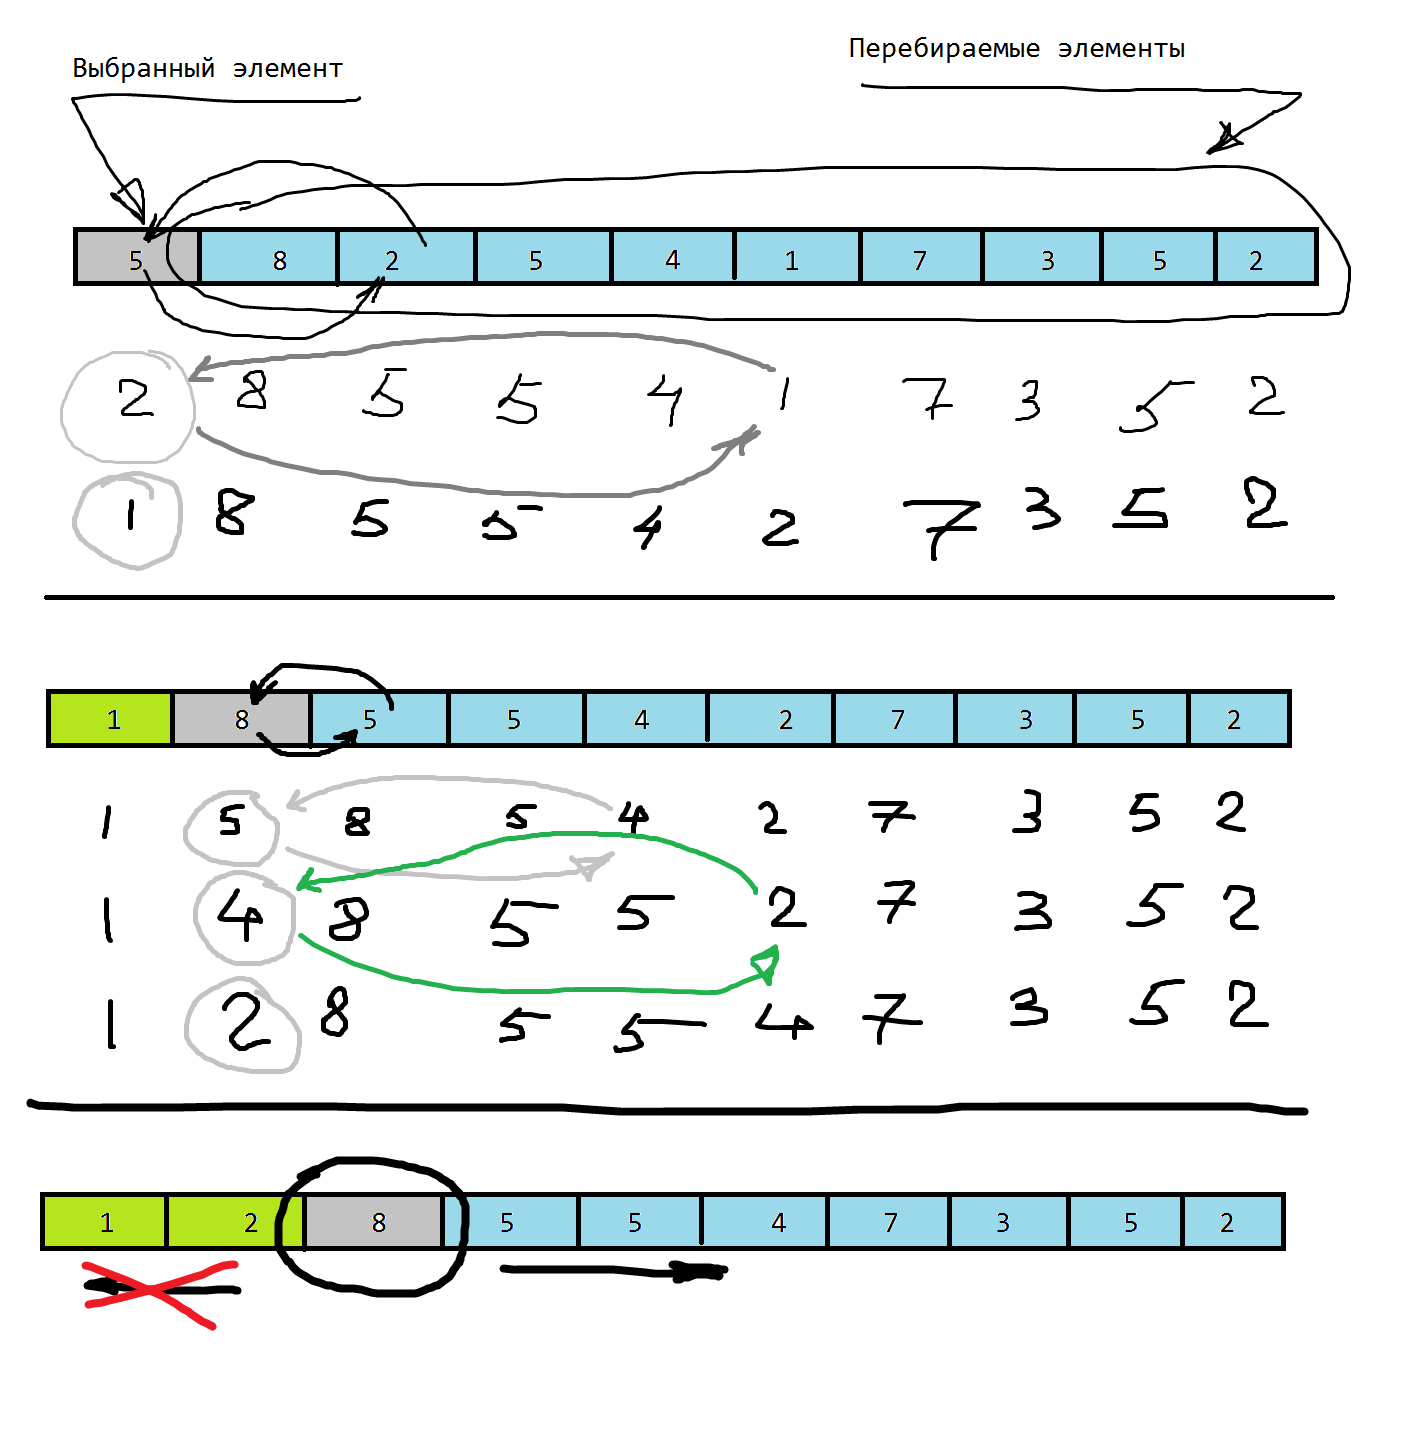 Перебираемые элементы
Выбранный элемент
5 8 2 5 4 1 7 3 5 2
2 8 5 5 4 1 7 3 5 2
1 8 5 5 4 2 7 3 5 2
1 8 5 5 4 2 7 3 5 2
1 5 8 5 4 2 7 3 5 2
1 4 8 5 5 2 7 3 5 2
1 2 8 5 5 4 7 3 5 2
1 2 8 5 5 4 7 3 5 2